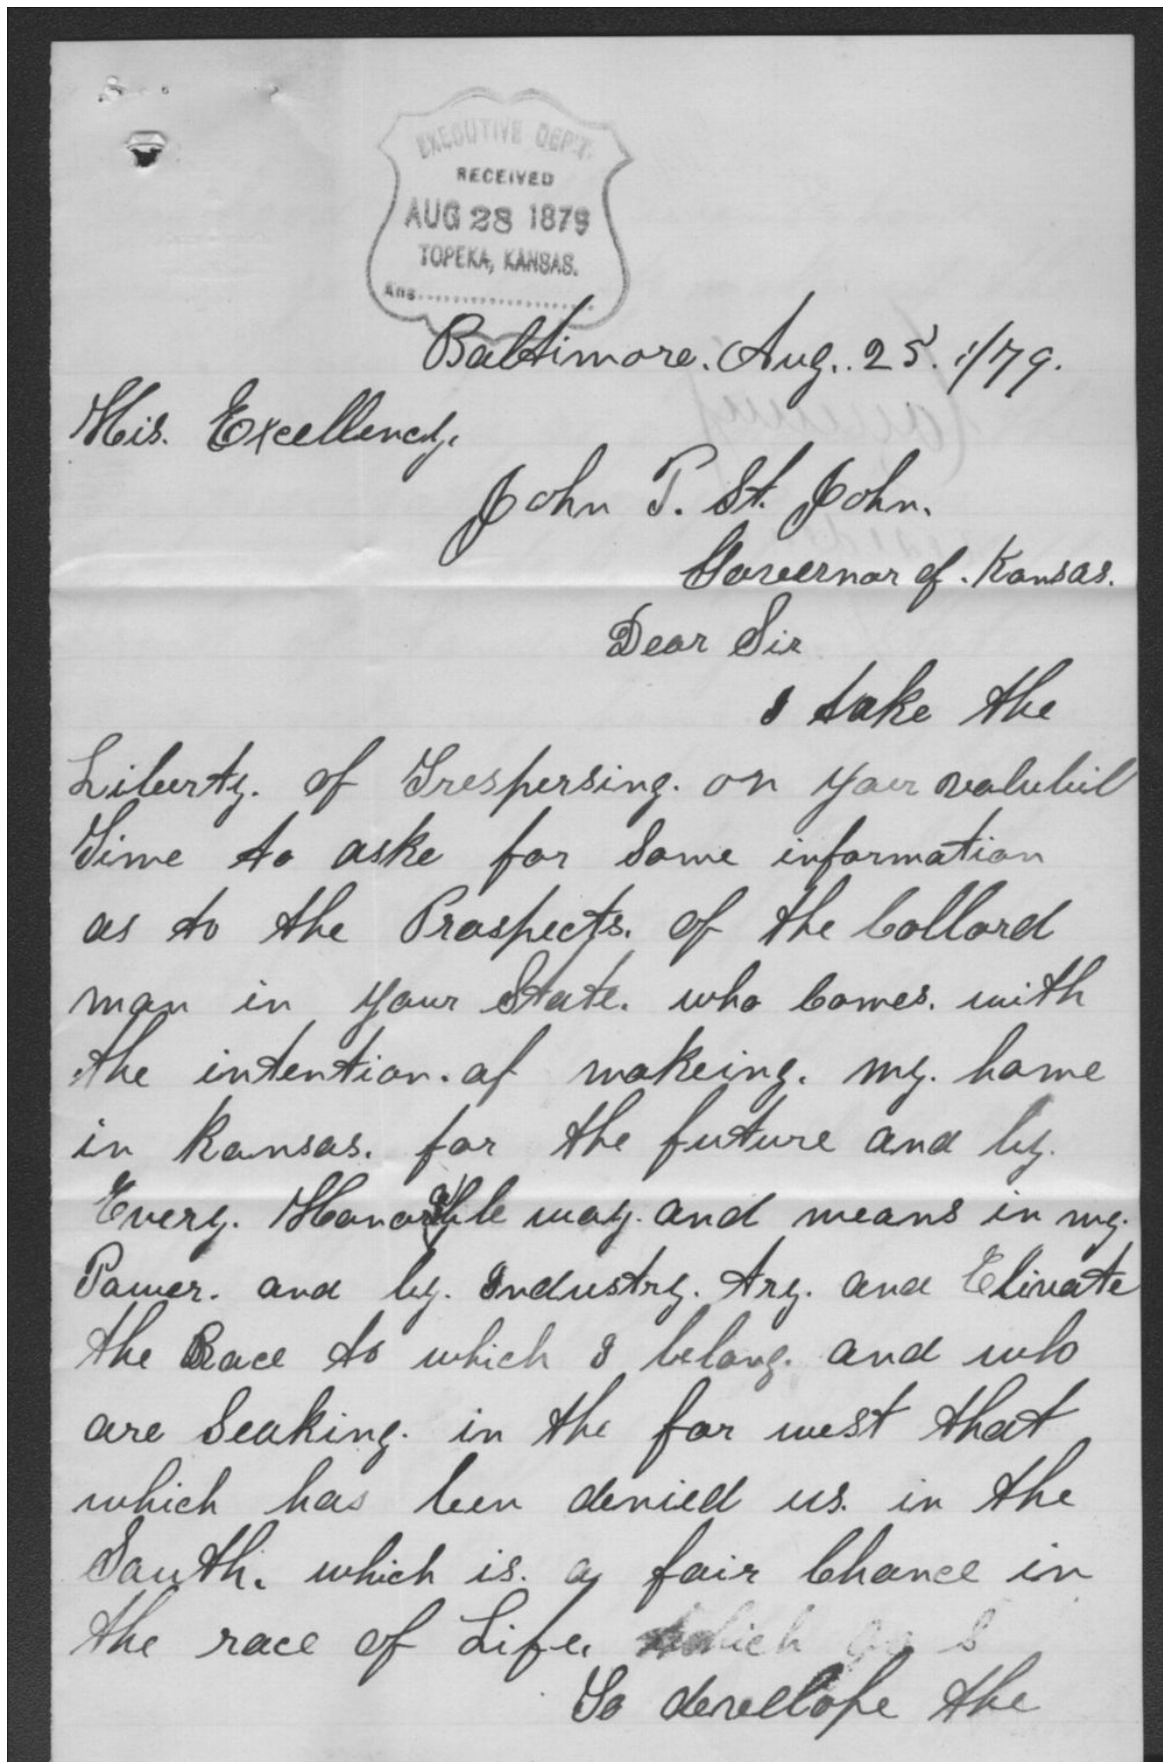 EXECUTIVE DEP'T.
RECEIVED
AUG 28 1879
TOPEKA, KANSAS.
Ans
Baltimore. Aug. 25. /79.
His. Excellency.
John P. St. John.
Governor of. Kansas.
Dear Sir
I take the
Liberty. of Trespersing. on your valubil
Time to aske for some information
as to the Prospects. of the Collord
man in your State. who Comes. with
the intention. of makeing. my. home
in Kansas. for the future and by.
Every. Honorable way. and means in my.
Power. and by. Industry. try. and Elivate
the Race to which I belong. and who
are Seaking. in the far west that
which has been denied us. in the
South. which is. a fair Chance in
the race of Life.
To devellope the